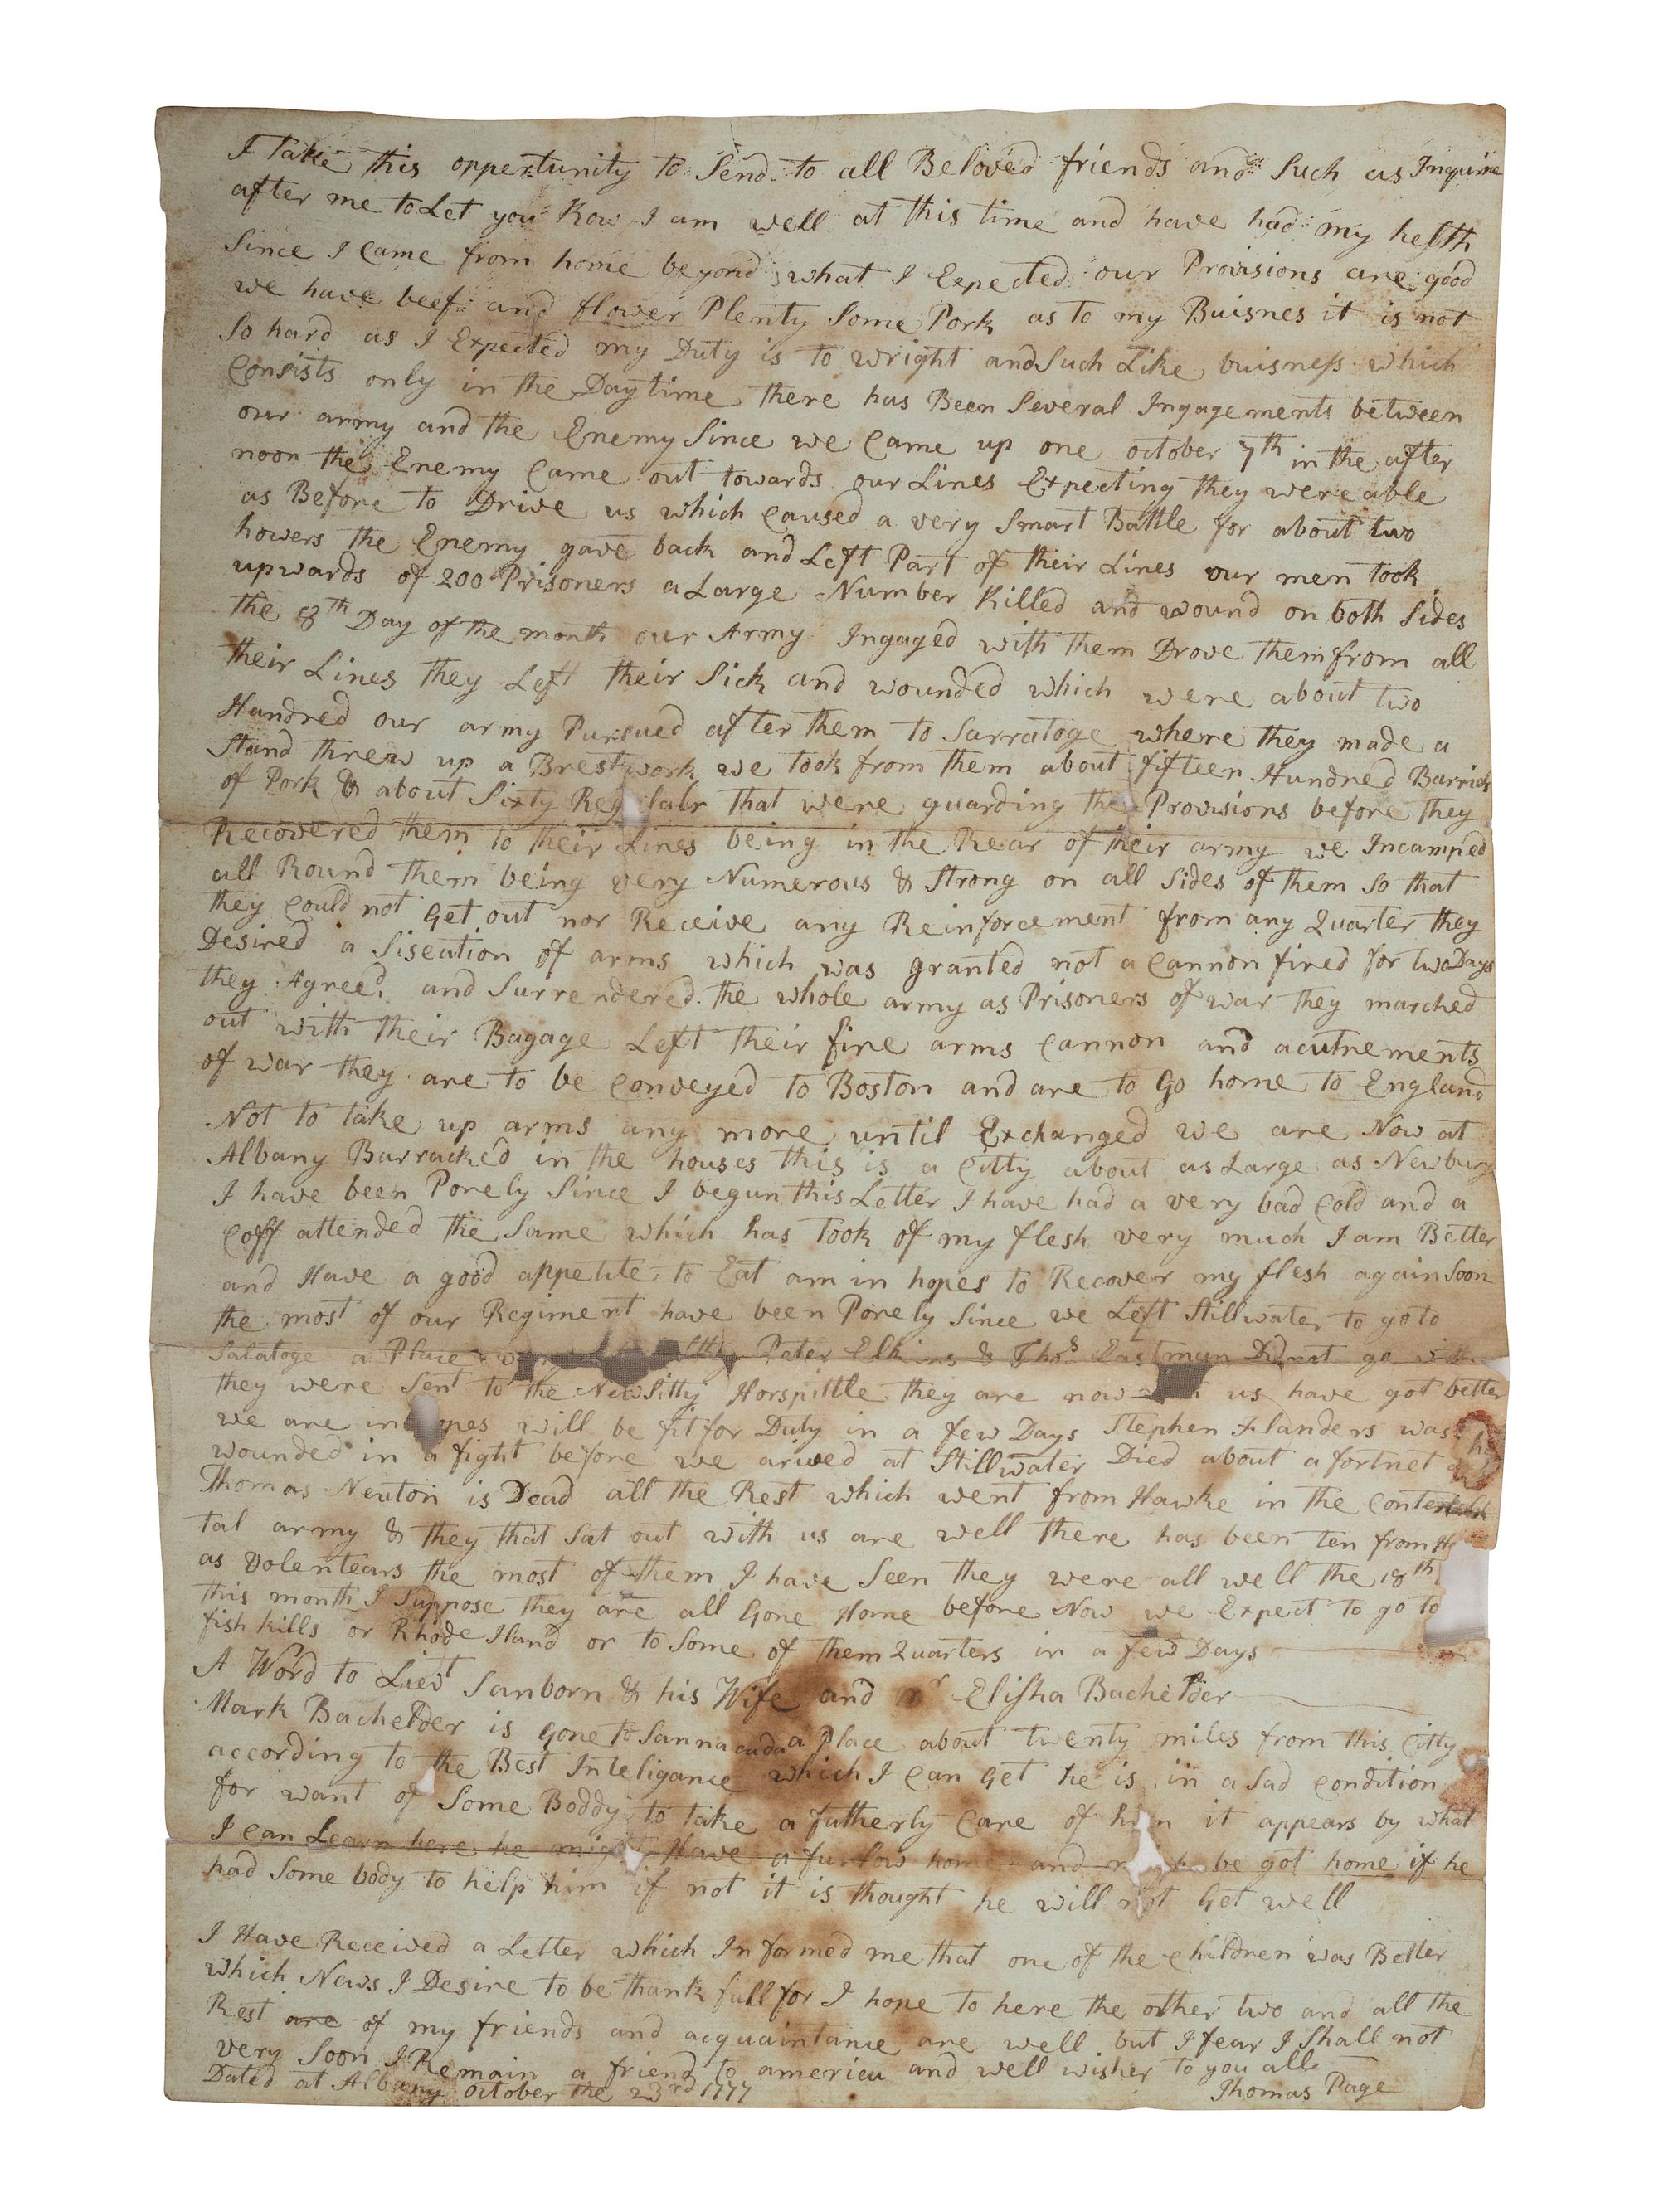 I Take this oppertunity to Send to all Beloved friends and Such as Inquire
after me to Let you Kow I am well at this time and have had my helth
Since I Came from home beyond what I Expected our Provisions are good
we have beef and flower Plenty Some Pork as to my Buisnes it is not
So hard as I Expected my Duty is to wright and Such Like buisness which
Consists only in the Daytime there has Been Several Ingagements between
our army and the Enemy Since we Came up one october 7th in the after
noon the Enemy Came out towards our Lines Expecting they were able
as Before to Drive us which Caused a very Smart Battle for about two
howers the Enemy gave back and Left Part of their Lines our men took
upwards of 200 Prisoners a Large Number Killed and wound on both Sides
the 8th Day of the month our Army Ingaged with them Drove them from all
their Lines they Left their Sick and wounded which were about two
Hundred our army Pursued after them to Sarratoge where they made a
Stand threw up a Brestwork we took from them about fifteen Hundred Barriels
of Pork & about Sixty Regular that were guarding the Provisions before they
Recovered them to their Lines being in the Rear of their army we Incamped
all Round them being very Numerous & Strong on all Sides of them So that
they Could not Get out nor Receive any Reinforcement from any Quarter they
Desired a Siseation of arms which was granted not a Cannon fired for two Days
they Agreed and Surrendered the whole army as Prisoners of war they marched
out with their Bagage Left their fire arms Cannon and acutrements
of war they are to be Conveyed to Boston and are to Go home to England
Not to take up arms any more until Exchanged we are Now at
Albany Barracked in the houses this is a Citty about as Large as Newbury
I have been Porely Since I begun this Letter I have had a very bad Cold and a
Coff attended the Same which has took of my flesh very much I am Better
and Have a good appetite to Eat am in hopes to Recover my flesh again Soon
the most of our Regiment have been Porely Since we Left Stillwater to go to
Salatoge a Place Peter Elkins & Thos Eastman Did not go
they were Sent to the New Sitty Horspittle they are now us have got better
we are in hopes will be fit for Duty in a few Days Stephen Flanders was
wounded in a fight before we arived at Stillwater Died about a fortnet
Thomas Newton is Dead all the Rest which went from Hawke in the
tal army & they that Sat out with us are well there has been ten from
as Volentears the most of them I have Seen they were all well the 18th
this month I Suppose they are all Gone Home before Now we Expect to go to
fish kills or Rhode Iland or to Some of them Quarters in a few Days
A Word to Liewt Sanborn & his Wife and mr Elisha Bachelder
Mark Bachelder is Gone to Sannacuda a Place about twenty miles from this Citty
according to the Best Inteligance which I Can Get he is in a Sad Condition
for want of Some Boddy to take a futherly Care of him it appears by what
I Can Learn here he might Have a furlow home and might be got home if he
had Some body to help him if not it is thought he will not Get well
I Have Received a Letter which Informed me that one of the Children was Better
which News I Desire to be thank full for I hope to here the other two and all the
Rest are of my friends and acquaintance are well but I fear I Shall not
very Soon I Remain a friend to america and well wisher to you all
Dated at Albany october the 23rd 1777 Thomas Page